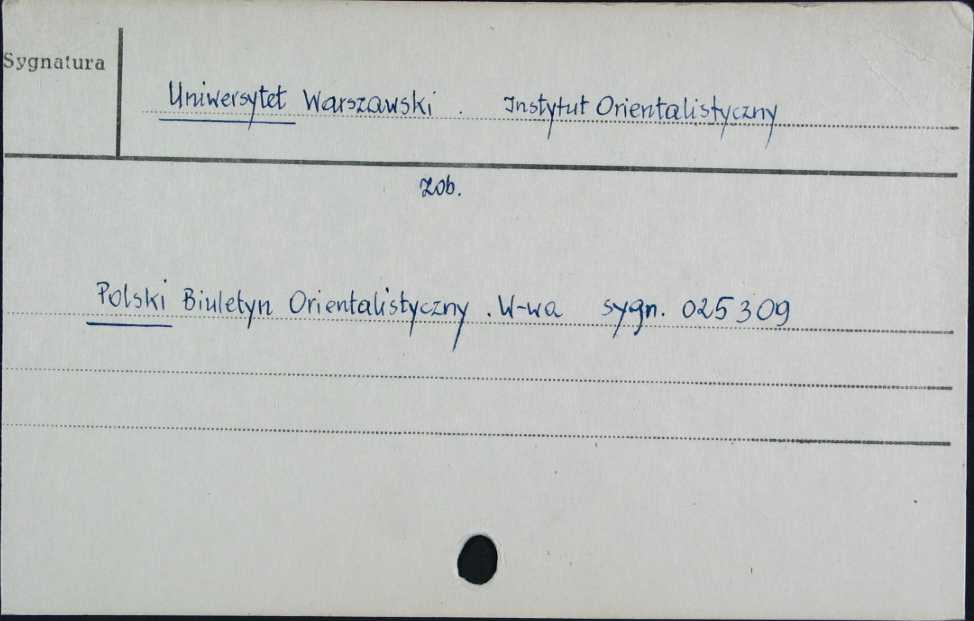 Sygnatura
Uniwersytet Warszawski. Instytut Orientalistyczny
Zob.
Polski Biuletyn Orientalistyczny. W-wa sygn. 025309